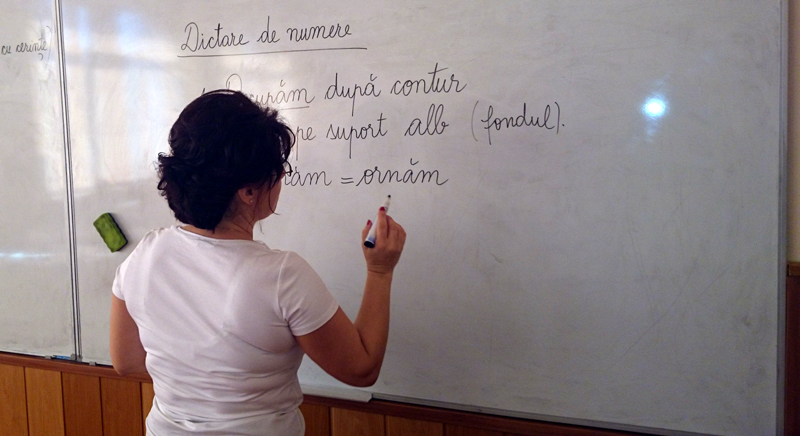 cu cerințe
Dictare de numere
Decupăm după contur
pe suport alb (fondul).
= ornăm